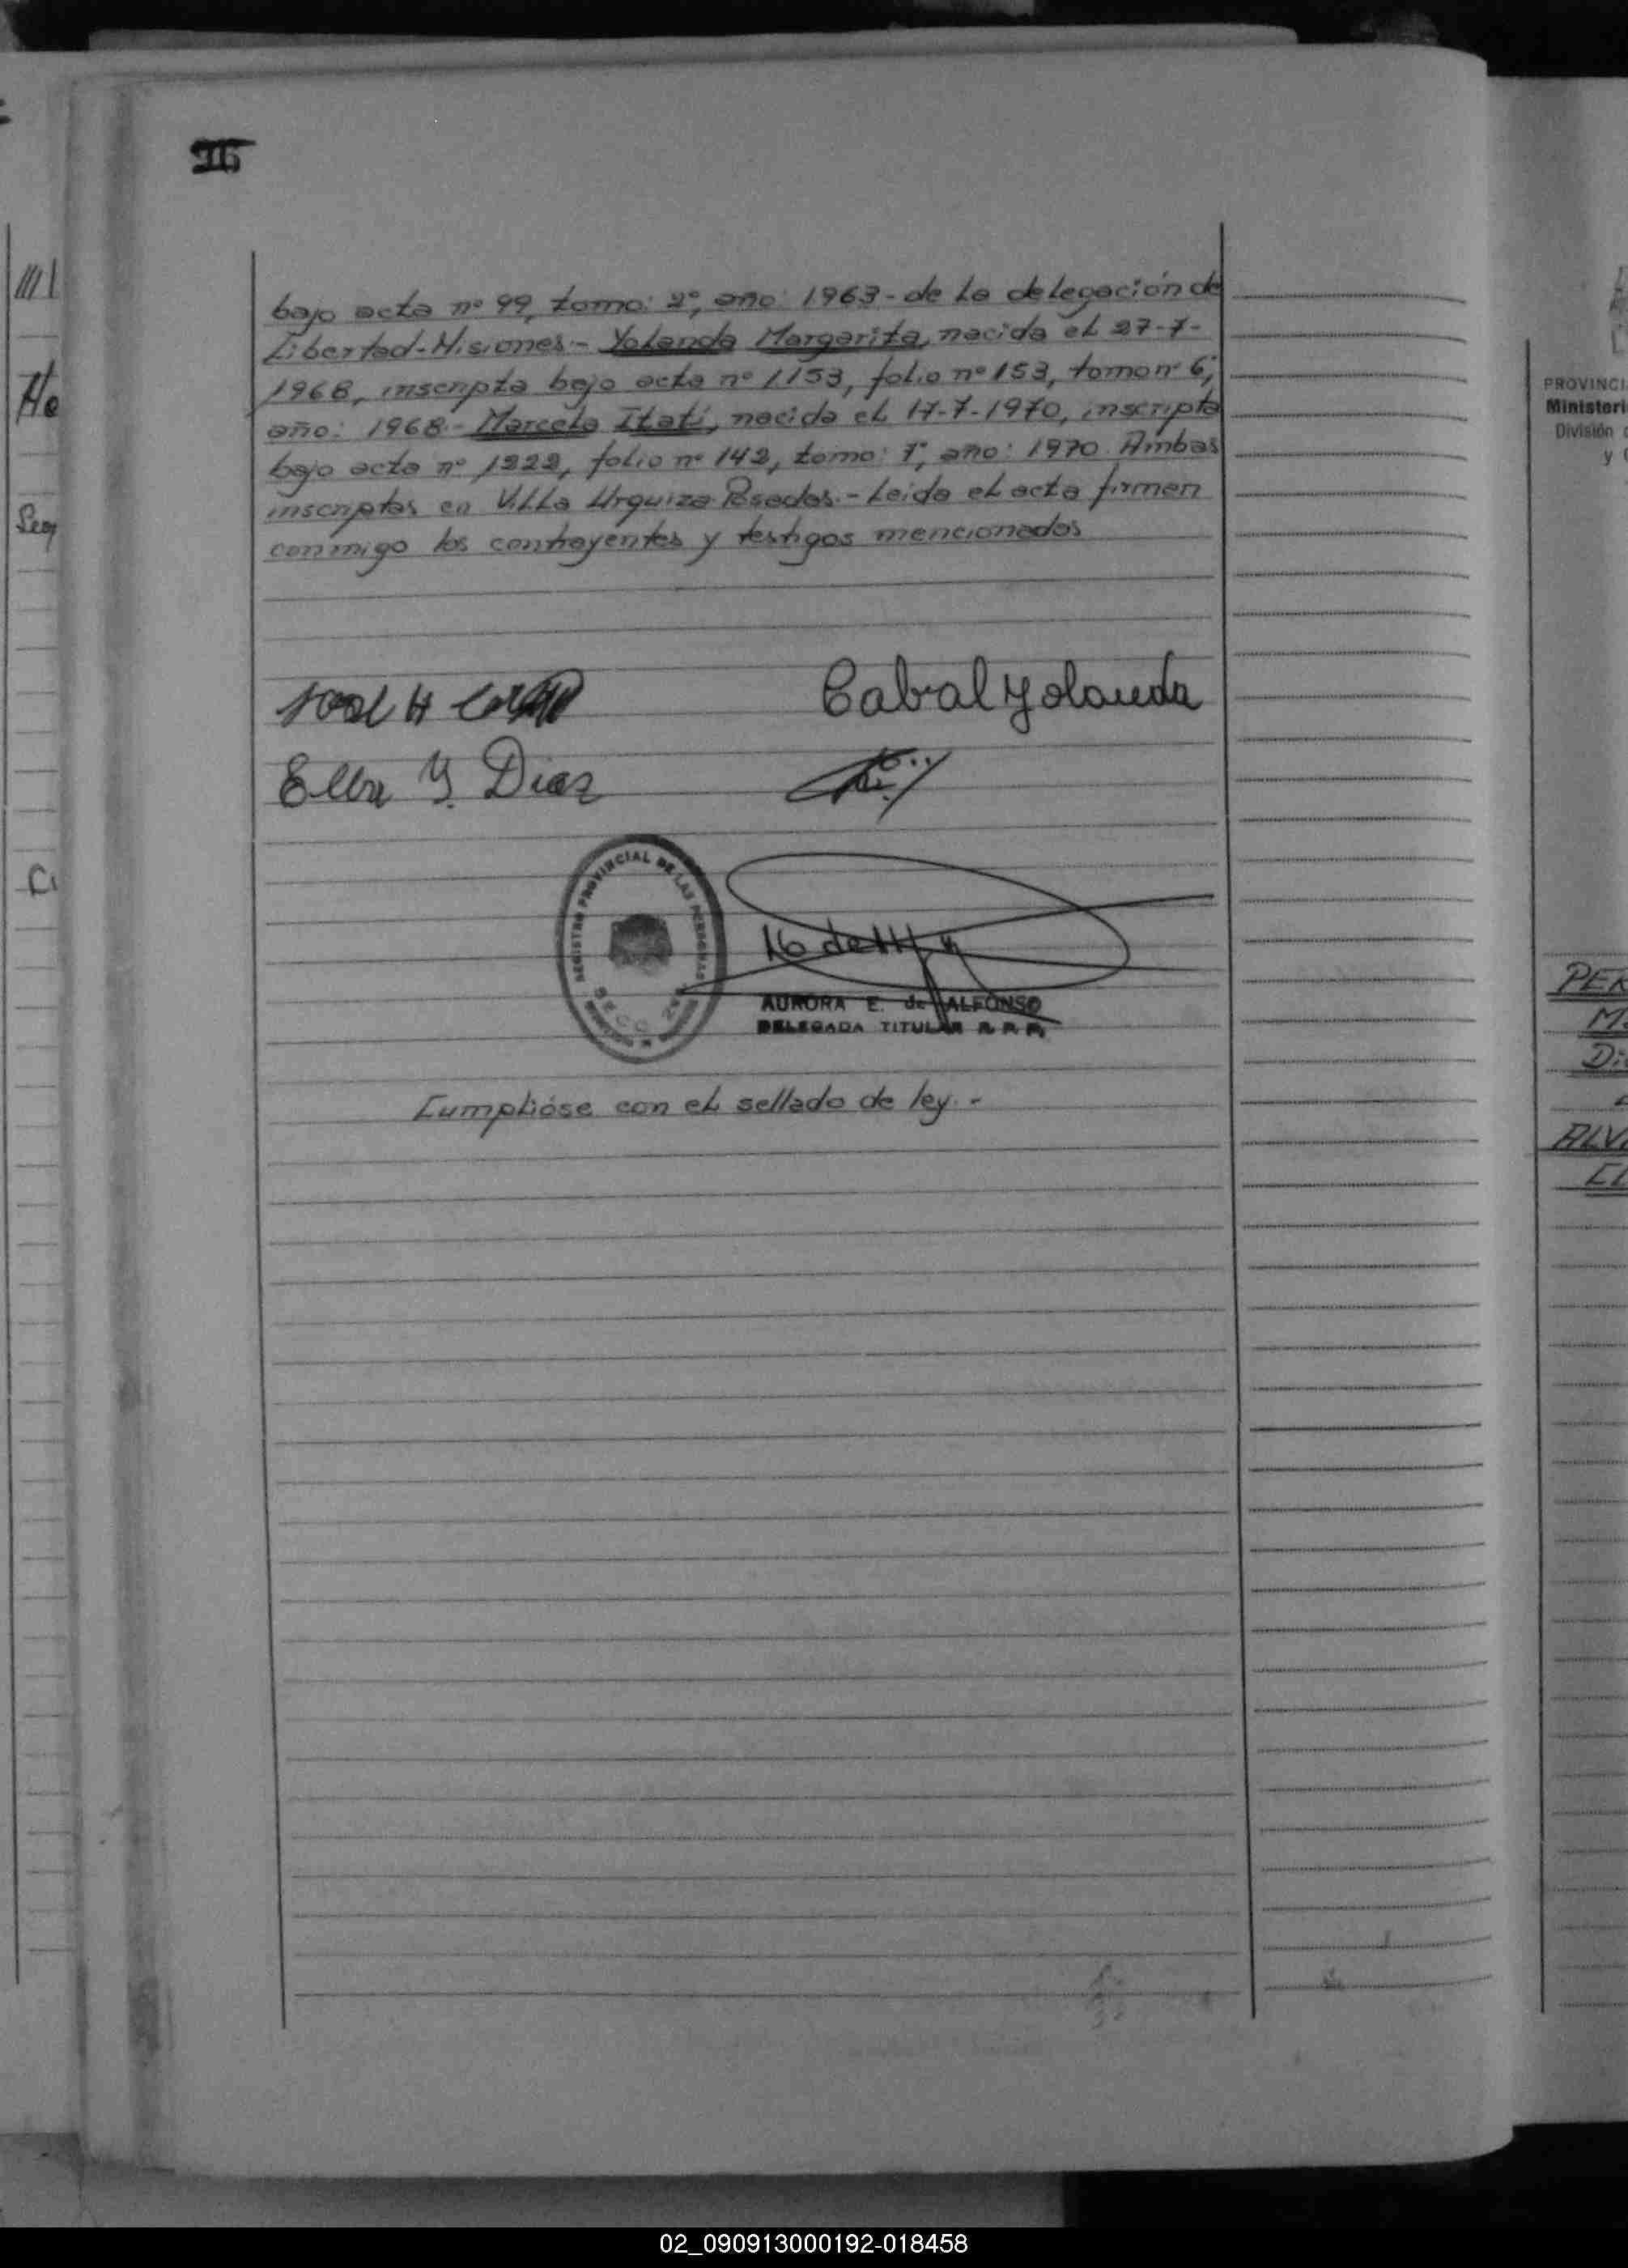 bajo acta nº 99, tomo: 2º, año: 1963- de la delegación de
Libertad-Misiones.- Yolanda Margarita, nacida el 27-7-
1968, inscripta bajo acta nº 1153, folio nº 153, tomo nº 6º,
año: 1968.- Marcela Itatí, nacida el 17-7-1970, inscripta
bajo acta nº 1222, folio nº 142, tomo: 7º, año: 1970. Ambas
inscriptas en Villa Urquiza-Posadas.- Leida el acta firman
conmigo los contrayentes y testigos mencionados
Cabral Yolanda
Elba Y. Diaz
REGISTRO PROVINCIAL DE LAS PERSONAS
AURORA E. de ALFONSO
DELEGADA TITULAR R. P. P.
Cumplióse con el sellado de ley.-
PROVINCI
Ministeri
División
y
ALV
02_090913000192-018458